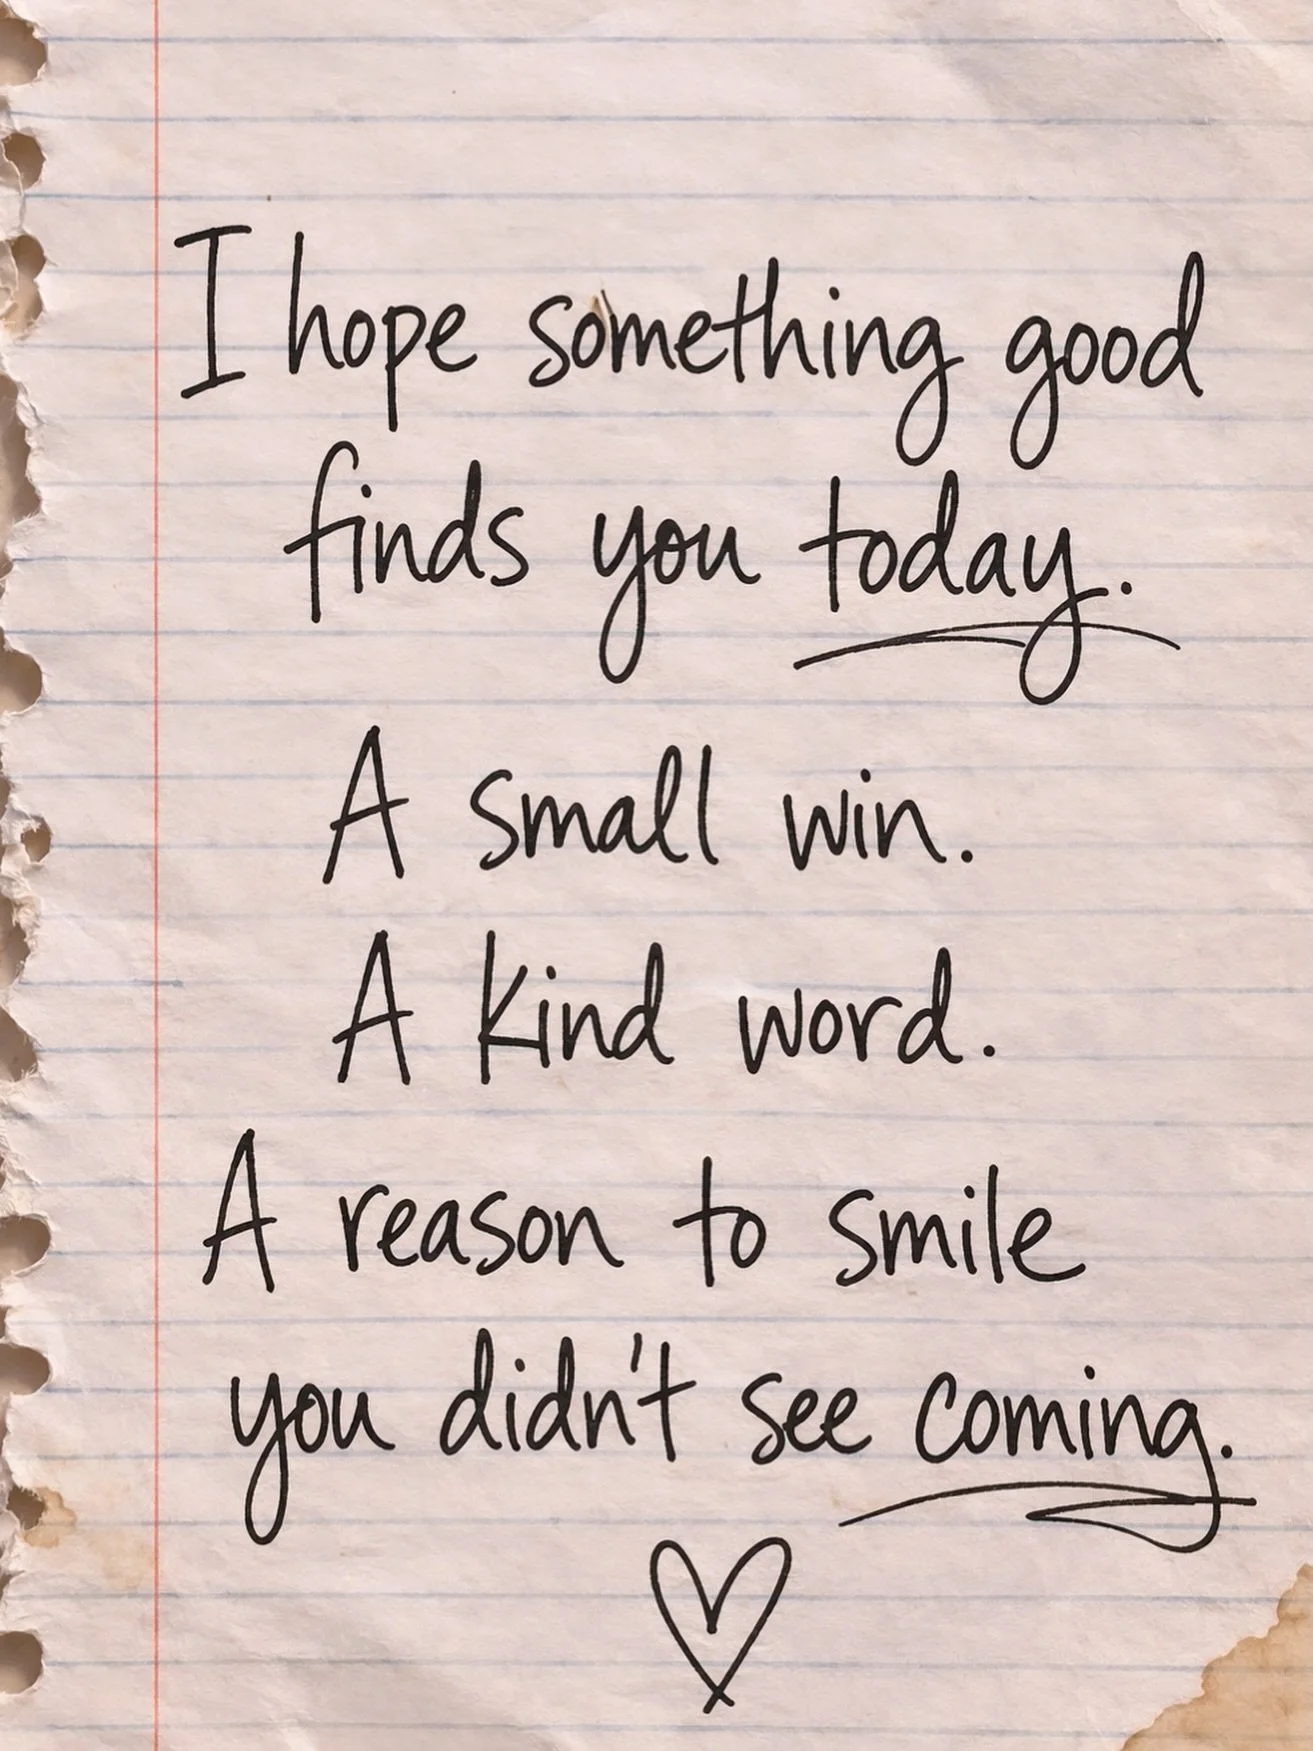 I hope something good
finds you today.
A small win.
A kind word.
A reason to smile
you didn't see coming.